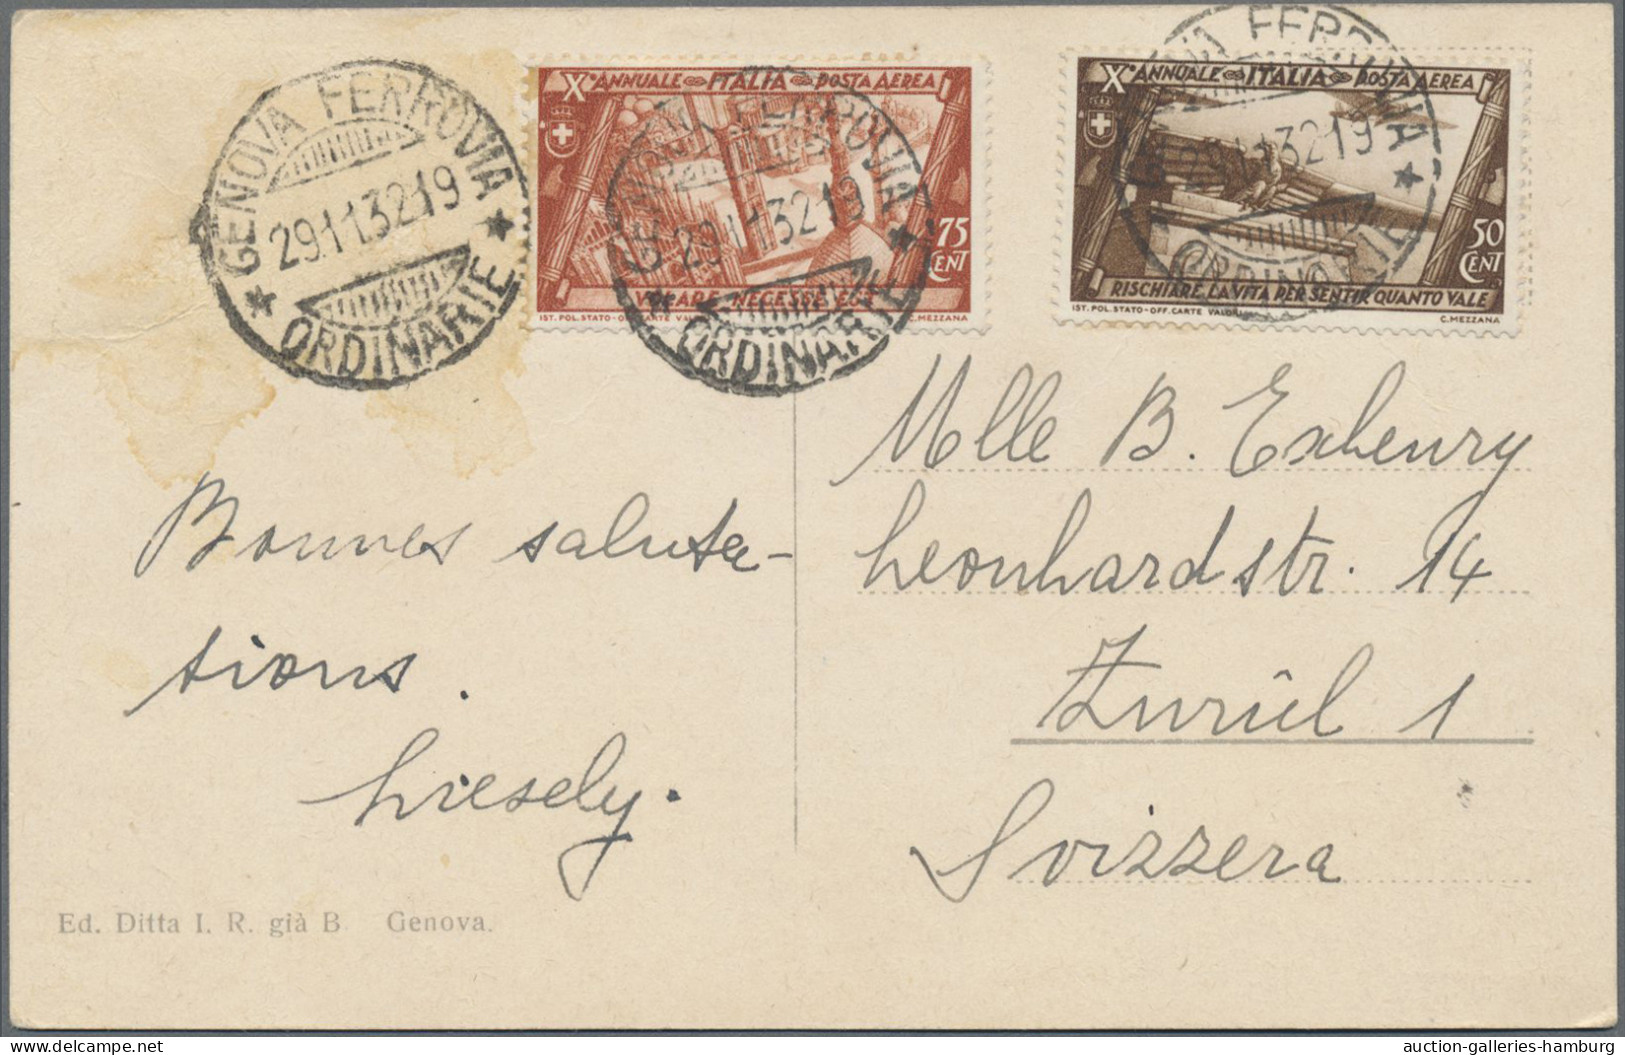 GENOVA FERROVIA
29.11.32.19
★ ORDINARIE ★
Xº ANNUALE ITALIA POSTA AEREA
75 CENT
IST. POL. STATO-OFF. CARTE VALORI
C. MEZZANA
GENOVA FERROVIA
29.11.32.19
★ ORDINARIE ★
Xº ANNUALE ITALIA POSTA AEREA
50 CENT
RISCHIARE LA VITA PER SENTIR QUANTO VALE
IST. POL. STATO-OFF. CARTE VALORI
C. MEZZANA
FERROVIA
29.11.32.19
ORDINARIE ★
Mlle B. Exhenry
Leonhardstr. 14
Zürich 1
Svizzera
Bonnes saluta-
tions.
Liesely.
Ed. Ditta I. R. già B. Genova.
auction-galleries-hamburg